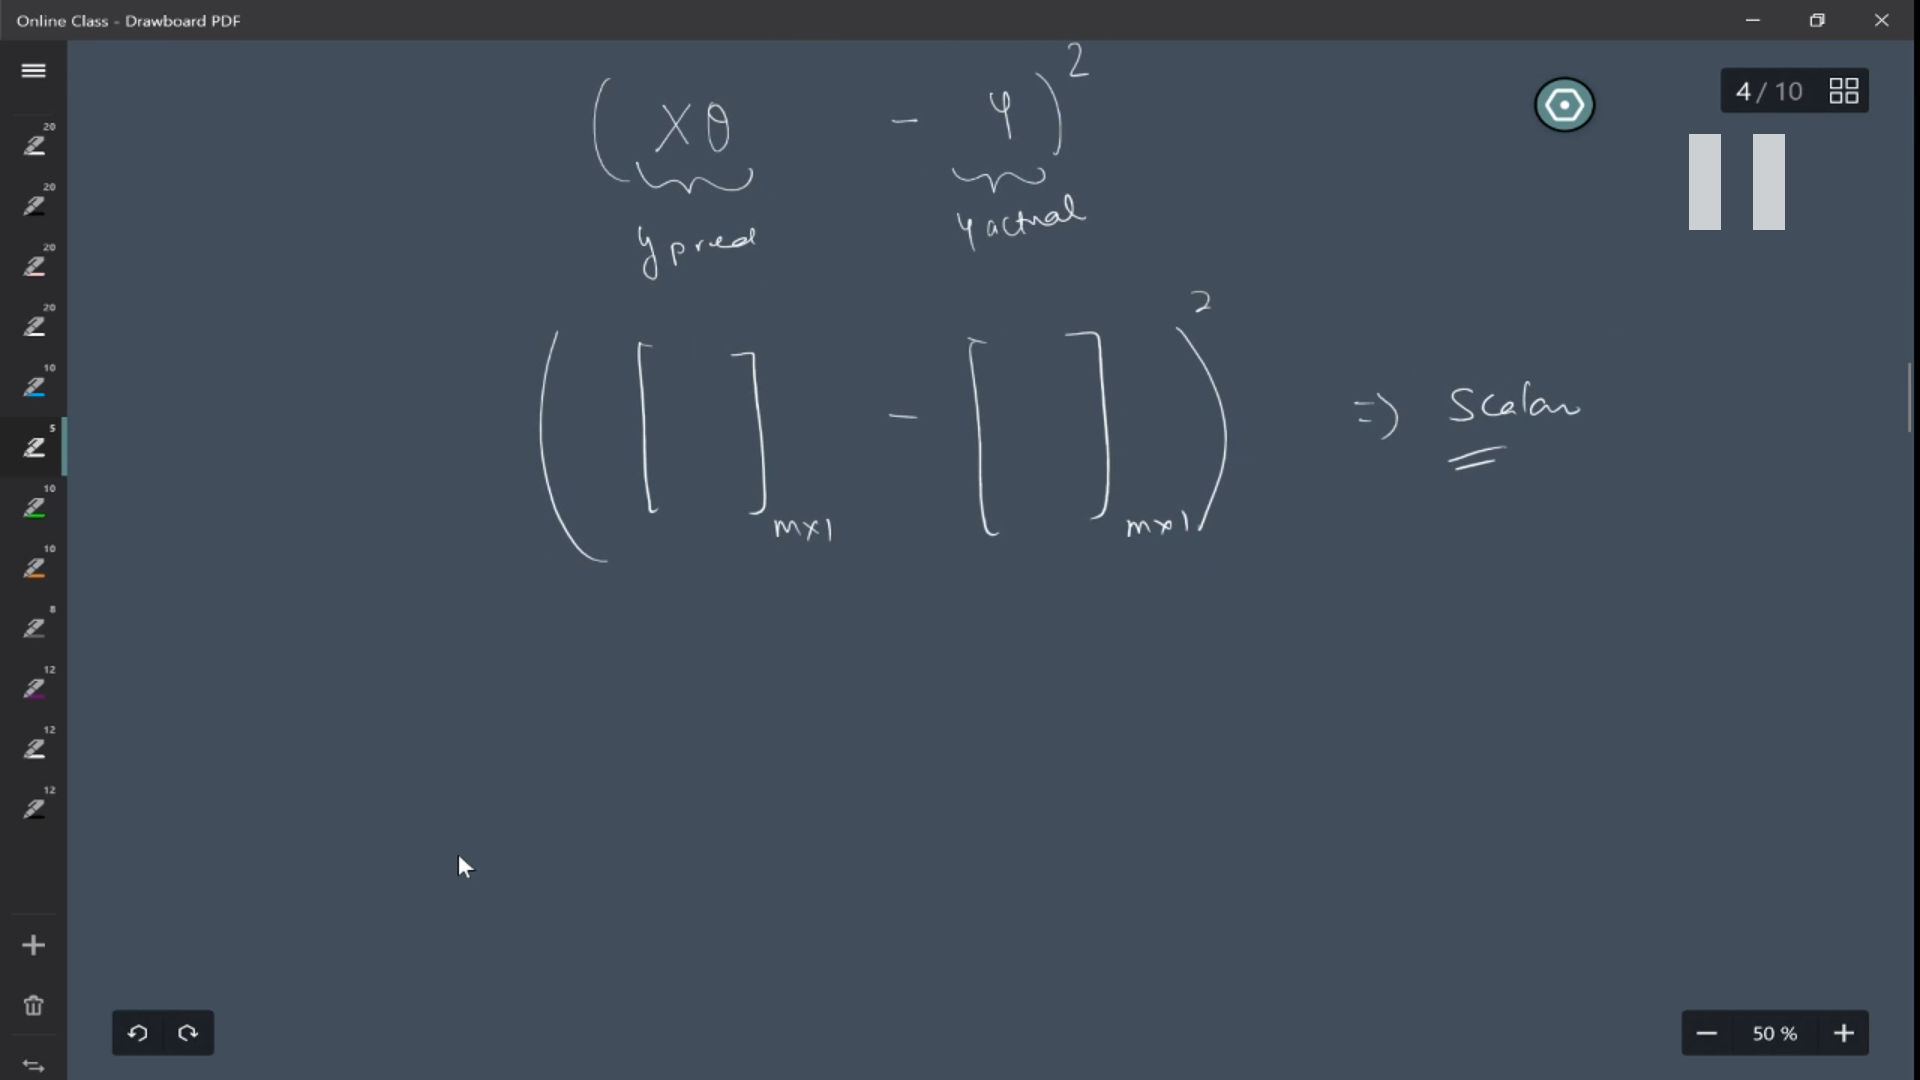 Online Class - Drawboard PDF
4 / 10
20
20
20
20
10
5
10
10
8
12
12
12
(Xθ - Y)²
y pred
Y actual
([ ]m×1 - [ ]m×1)² => Scalar
50 %